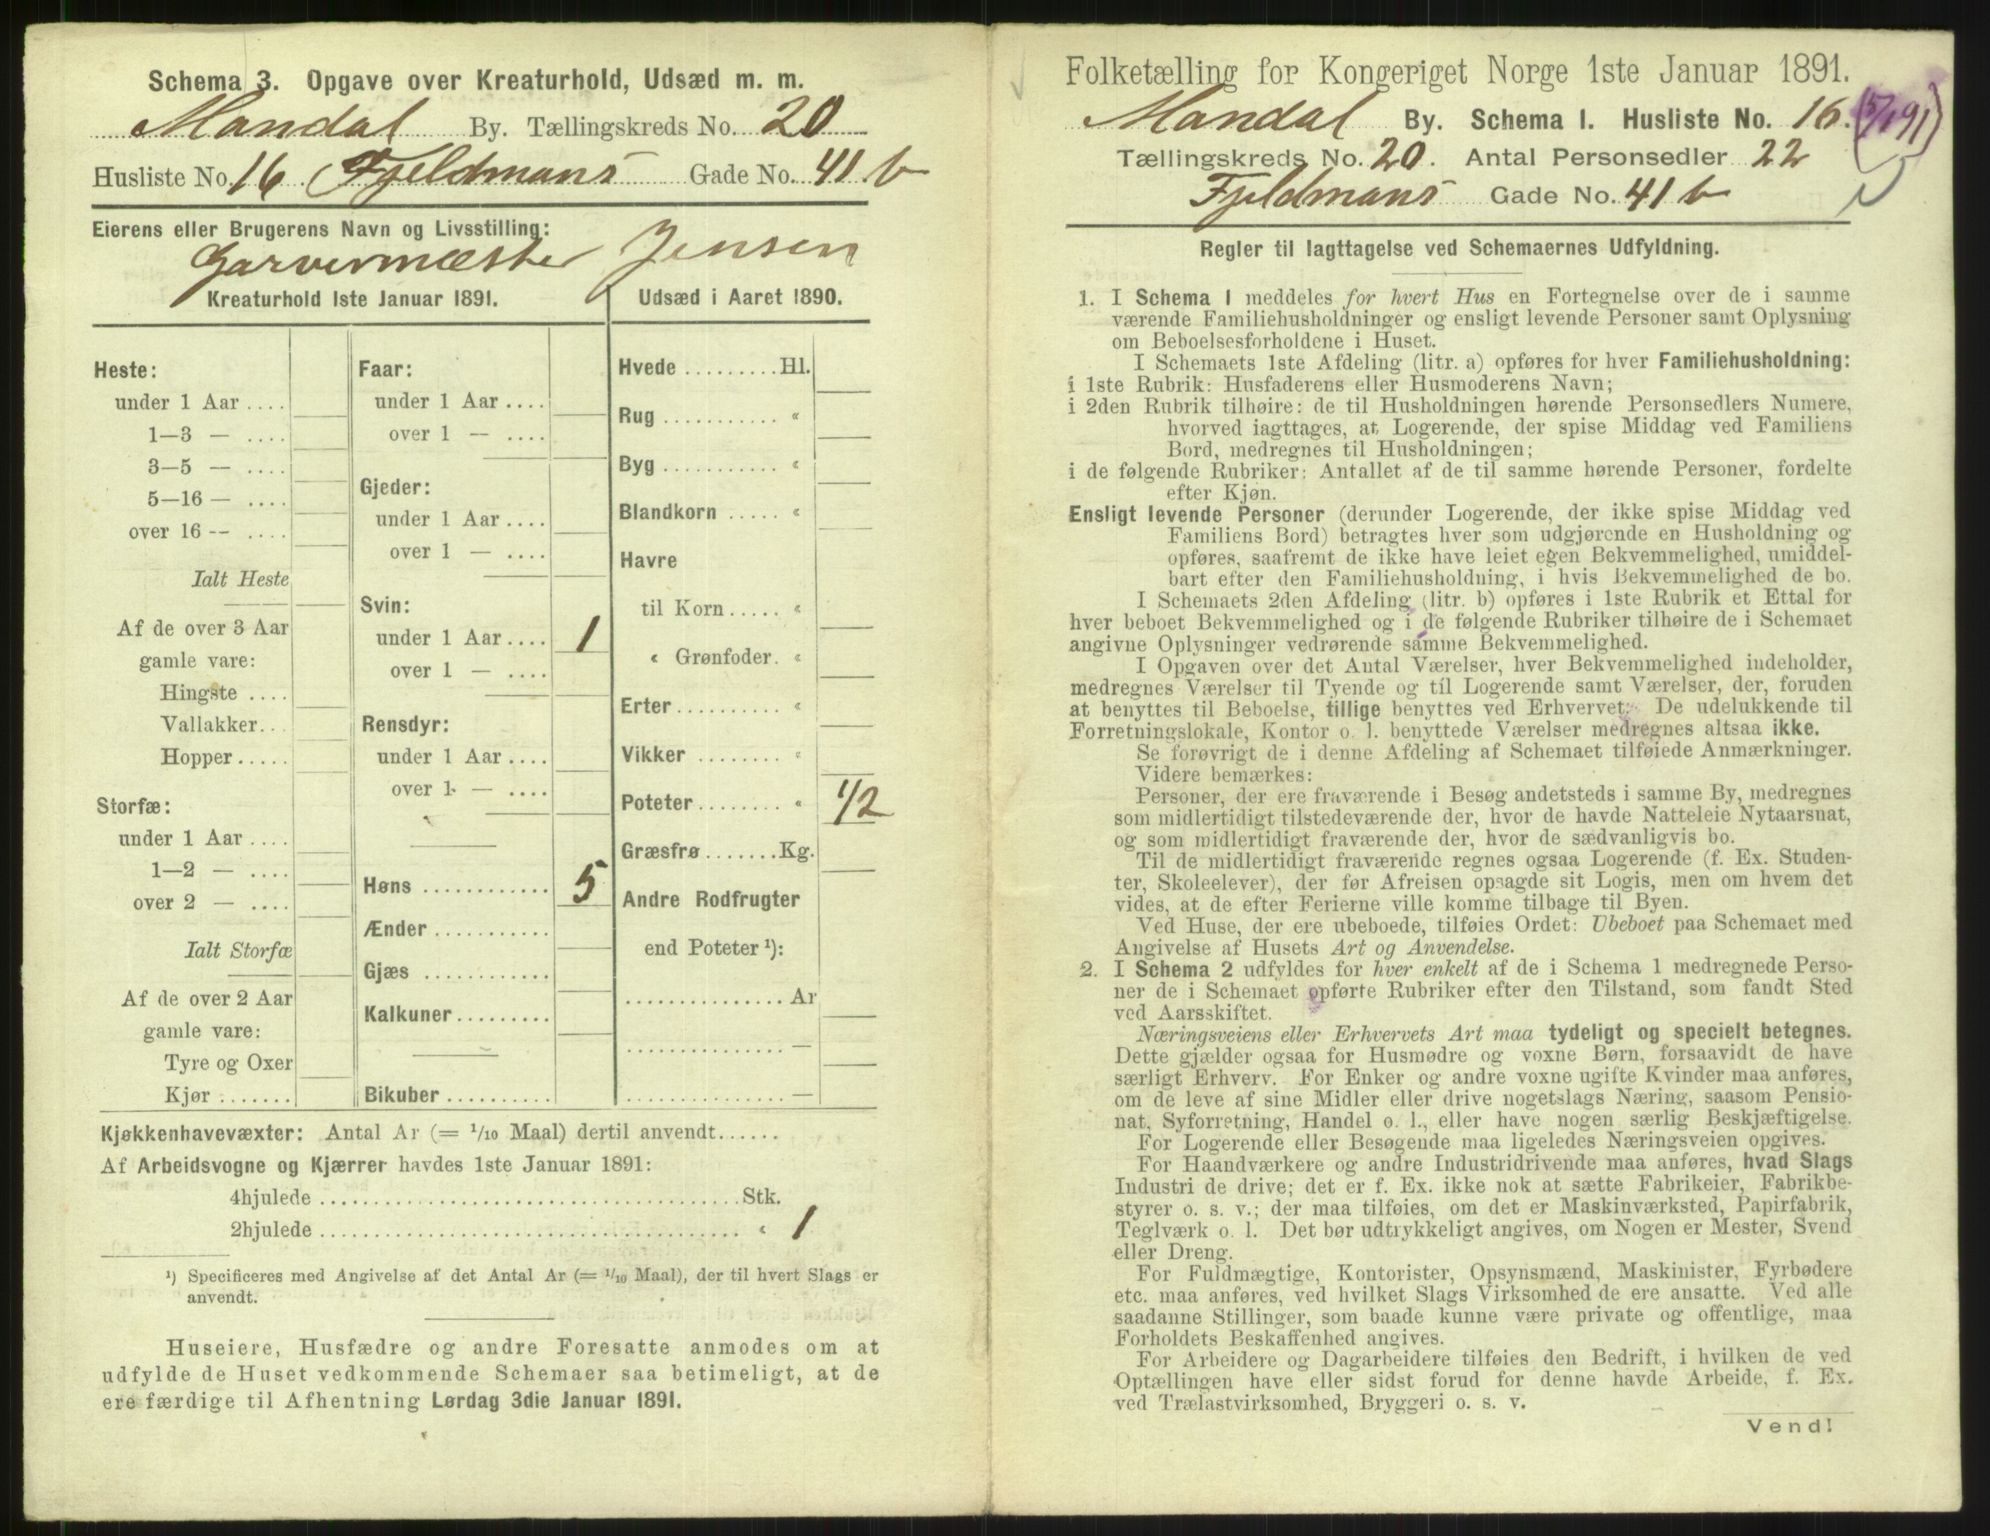 Schema 3. Opgave over Kreaturhold, Udsæd m. m.
Mandal By. Tællingskreds No. 20
Husliste No. 16 Fjeldmans Gade No. 41 b
Eierens eller Brugerens Navn og Livsstilling:
Garvermæster Jensen
Kreaturhold 1ste Januar 1891.
Heste:
under 1 Aar ....
1—3 — ....
3—5 — ....
5—16 — ....
over 16 -- ....
Ialt Heste
Af de over 3 Aar
gamle vare:
Hingste ....
Vallakker...
Hopper.....
Storfæ:
under 1 Aar ....
1—2 — ....
over 2 — ....
Ialt Storfæ
Af de over 2 Aar
gamle vare:
Tyre og Oxer
Kjør .......
Faar:
under 1 Aar ....
over 1 — ....
Gjeder:
under 1 Aar ....
over 1 — ....
Svin:
under 1 Aar .... 1
over 1 — ....
Rensdyr:
under 1 Aar ....
over 1 — ....
Høns ............ 5
Ænder ...........
Gjæs ............
Kalkuner.........
Bikuber ..........
Udsæd i Aaret 1890.
Hvede .........Hl.
Rug ........... «
Byg ........... «
Blandkorn ..... «
Havre
til Korn..... «
« Grønfoder. «
Erter.......... «
Vikker ........ «
Poteter........ « 1/2
Græsfrø.......Kg.
Andre Rodfrugter
end Poteter ¹):
...............Ar
...............—
...............—
Kjøkkenhavevæxter: Antal Ar (= 1/10 Maal) dertil anvendt......
Af Arbeidsvogne og Kjærrer havdes 1ste Januar 1891:
4hjulede ........................................Stk.
2hjulede ........................................ « 1
¹) Specificeres med Angivelse af det Antal Ar (= 1/10 Maal), der til hvert Slags er
anvendt.
Huseiere, Husfædre og andre Foresatte anmodes om at
udfylde de Huset vedkommende Schemaer saa betimeligt, at de
ere færdige til Afhentning Lørdag 3die Januar 1891.
Folketælling for Kongeriget Norge 1ste Januar 1891.
Mandal By. Schema 1. Husliste No. 16.
Tællingskreds No. 20. Antal Personsedler 22
Fjeldmans Gade No. 41 b
Regler til Iagttagelse ved Schemaernes Udfyldning.
1. I Schema 1 meddeles for hvert Hus en Fortegnelse over de i samme
værende Familiehusholdninger og ensligt levende Personer samt Oplysning
om Beboelsesforholdene i Huset.
I Schemaets 1ste Afdeling (litr. a) opføres for hver Familiehusholdning:
i 1ste Rubrik: Husfaderens eller Husmoderens Navn;
i 2den Rubrik tilhøire: de til Husholdningen hørende Personsedlers Numere,
hvorved iagttages, at Logerende, der spise Middag ved Familiens
Bord, medregnes til Husholdningen;
i de følgende Rubriker: Antallet af de til samme hørende Personer, fordelte
efter Kjøn.
Ensligt levende Personer (derunder Logerende, der ikke spise Middag ved
Familiens Bord) betragtes hver som udgjørende en Husholdning og
opføres, saafremt de ikke have leiet egen Bekvemmelighed, umiddel-
bart efter den Familiehusholdning, i hvis Bekvemmelighed de bo.
I Schemaets 2den Afdeling (litr. b) opføres i 1ste Rubrik et Ettal for
hver beboet Bekvemmelighed og i de følgende Rubriker tilhøire de i Schemaet
angivne Oplysninger vedrørende samme Bekvemmelighed.
I Opgaven over det Antal Værelser, hver Bekvemmelighed indeholder,
medregnes Værelser til Tyende og til Logerende samt Værelser, der, foruden
at benyttes til Beboelse, tillige benyttes ved Erhvervet. De udelukkende til
Forretningslokale, Kontor o. l. benyttede Værelser medregnes altsaa ikke.
Se forøvrigt de i denne Afdeling af Schemaet tilføiede Anmærkninger.
Videre bemærkes:
Personer, der ere fraværende i Besøg andetsteds i samme By, medregnes
som midlertidigt tilstedeværende der, hvor de havde Natteleie Nytaarsnat,
og som midlertidigt fraværende der, hvor de sædvanligvis bo.
Til de midlertidigt fraværende regnes ogsaa Logerende (f. Ex. Studen-
ter, Skoleelever), der før Afreisen opsagde sit Logis, men om hvem det
vides, at de efter Ferierne ville komme tilbage til Byen.
Ved Huse, der ere ubeboede, tilføies Ordet: Ubeboet paa Schemaet med
Angivelse af Husets Art og Anvendelse.
2. I Schema 2 udfyldes for hver enkelt af de i Schema 1 medregnede Perso-
ner de i Schemaet opførte Rubriker efter den Tilstand, som fandt Sted
ved Aarsskiftet.
Næringsveiens eller Erhvervets Art maa tydeligt og specielt betegnes.
Dette gjælder ogsaa for Husmødre og voxne Børn, forsaavidt de have
særligt Erhverv. For Enker og andre voxne ugifte Kvinder maa anføres,
om de leve af sine Midler eller drive nogetslags Næring, saasom Pensio-
nat, Syforretning, Handel o. l., eller have nogen særlig Beskjæftigelse.
For Logerende eller Besøgende maa ligeledes Næringsveien opgives.
For Haandværkere og andre Industridrivende maa anføres, hvad Slags
Industri de drive; det er f. Ex. ikke nok at sætte Fabrikeier, Fabrikbe-
styrer o. s. v.; der maa tilføies, om det er Maskinværksted, Papirfabrik,
Teglværk o. l. Det bør udtrykkeligt angives, om Nogen er Mester, Svend
eller Dreng.
For Fuldmægtige, Kontorister, Opsynsmænd, Maskinister, Fyrbødere
etc. maa anføres, ved hvilket Slags Virksomhed de ere ansatte. Ved alle
saadanne Stillinger, som baade kunne være private og offentlige, maa
Forholdets Beskaffenhed angives.
For Arbeidere og Dagarbeidere tilføies den Bedrift, i hvilken de ved
Optællingen have eller sidst forud for denne havde Arbeide, f. Ex.
ved Trælastvirksomhed, Bryggeri o. s. v.
Vend!